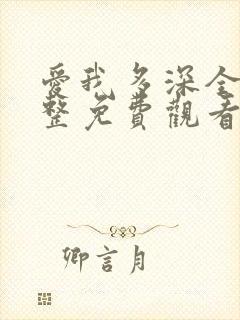 愛我多深全
整免費觀看
卿言月